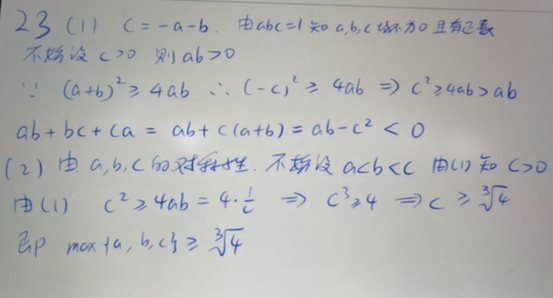 23 (1) c = -a-b. 由abc=1知a,b,c均不为0且有正数
不妨设 c>0 则ab>0
∵ (a+b)² ≥ 4ab ∴ (-c)² ≥ 4ab ⇒ c² ≥ 4ab > ab
ab + bc + ca = ab + c(a+b) = ab - c² < 0
(2) 由 a,b,c的对称性. 不妨设 a<b<c 由(1)知 c>0
由(1) c² ≥ 4ab = 4·1/c ⇒ c³ ≥ 4 ⇒ c ≥ ∛4
即 max{a, b, c} ≥ ∛4